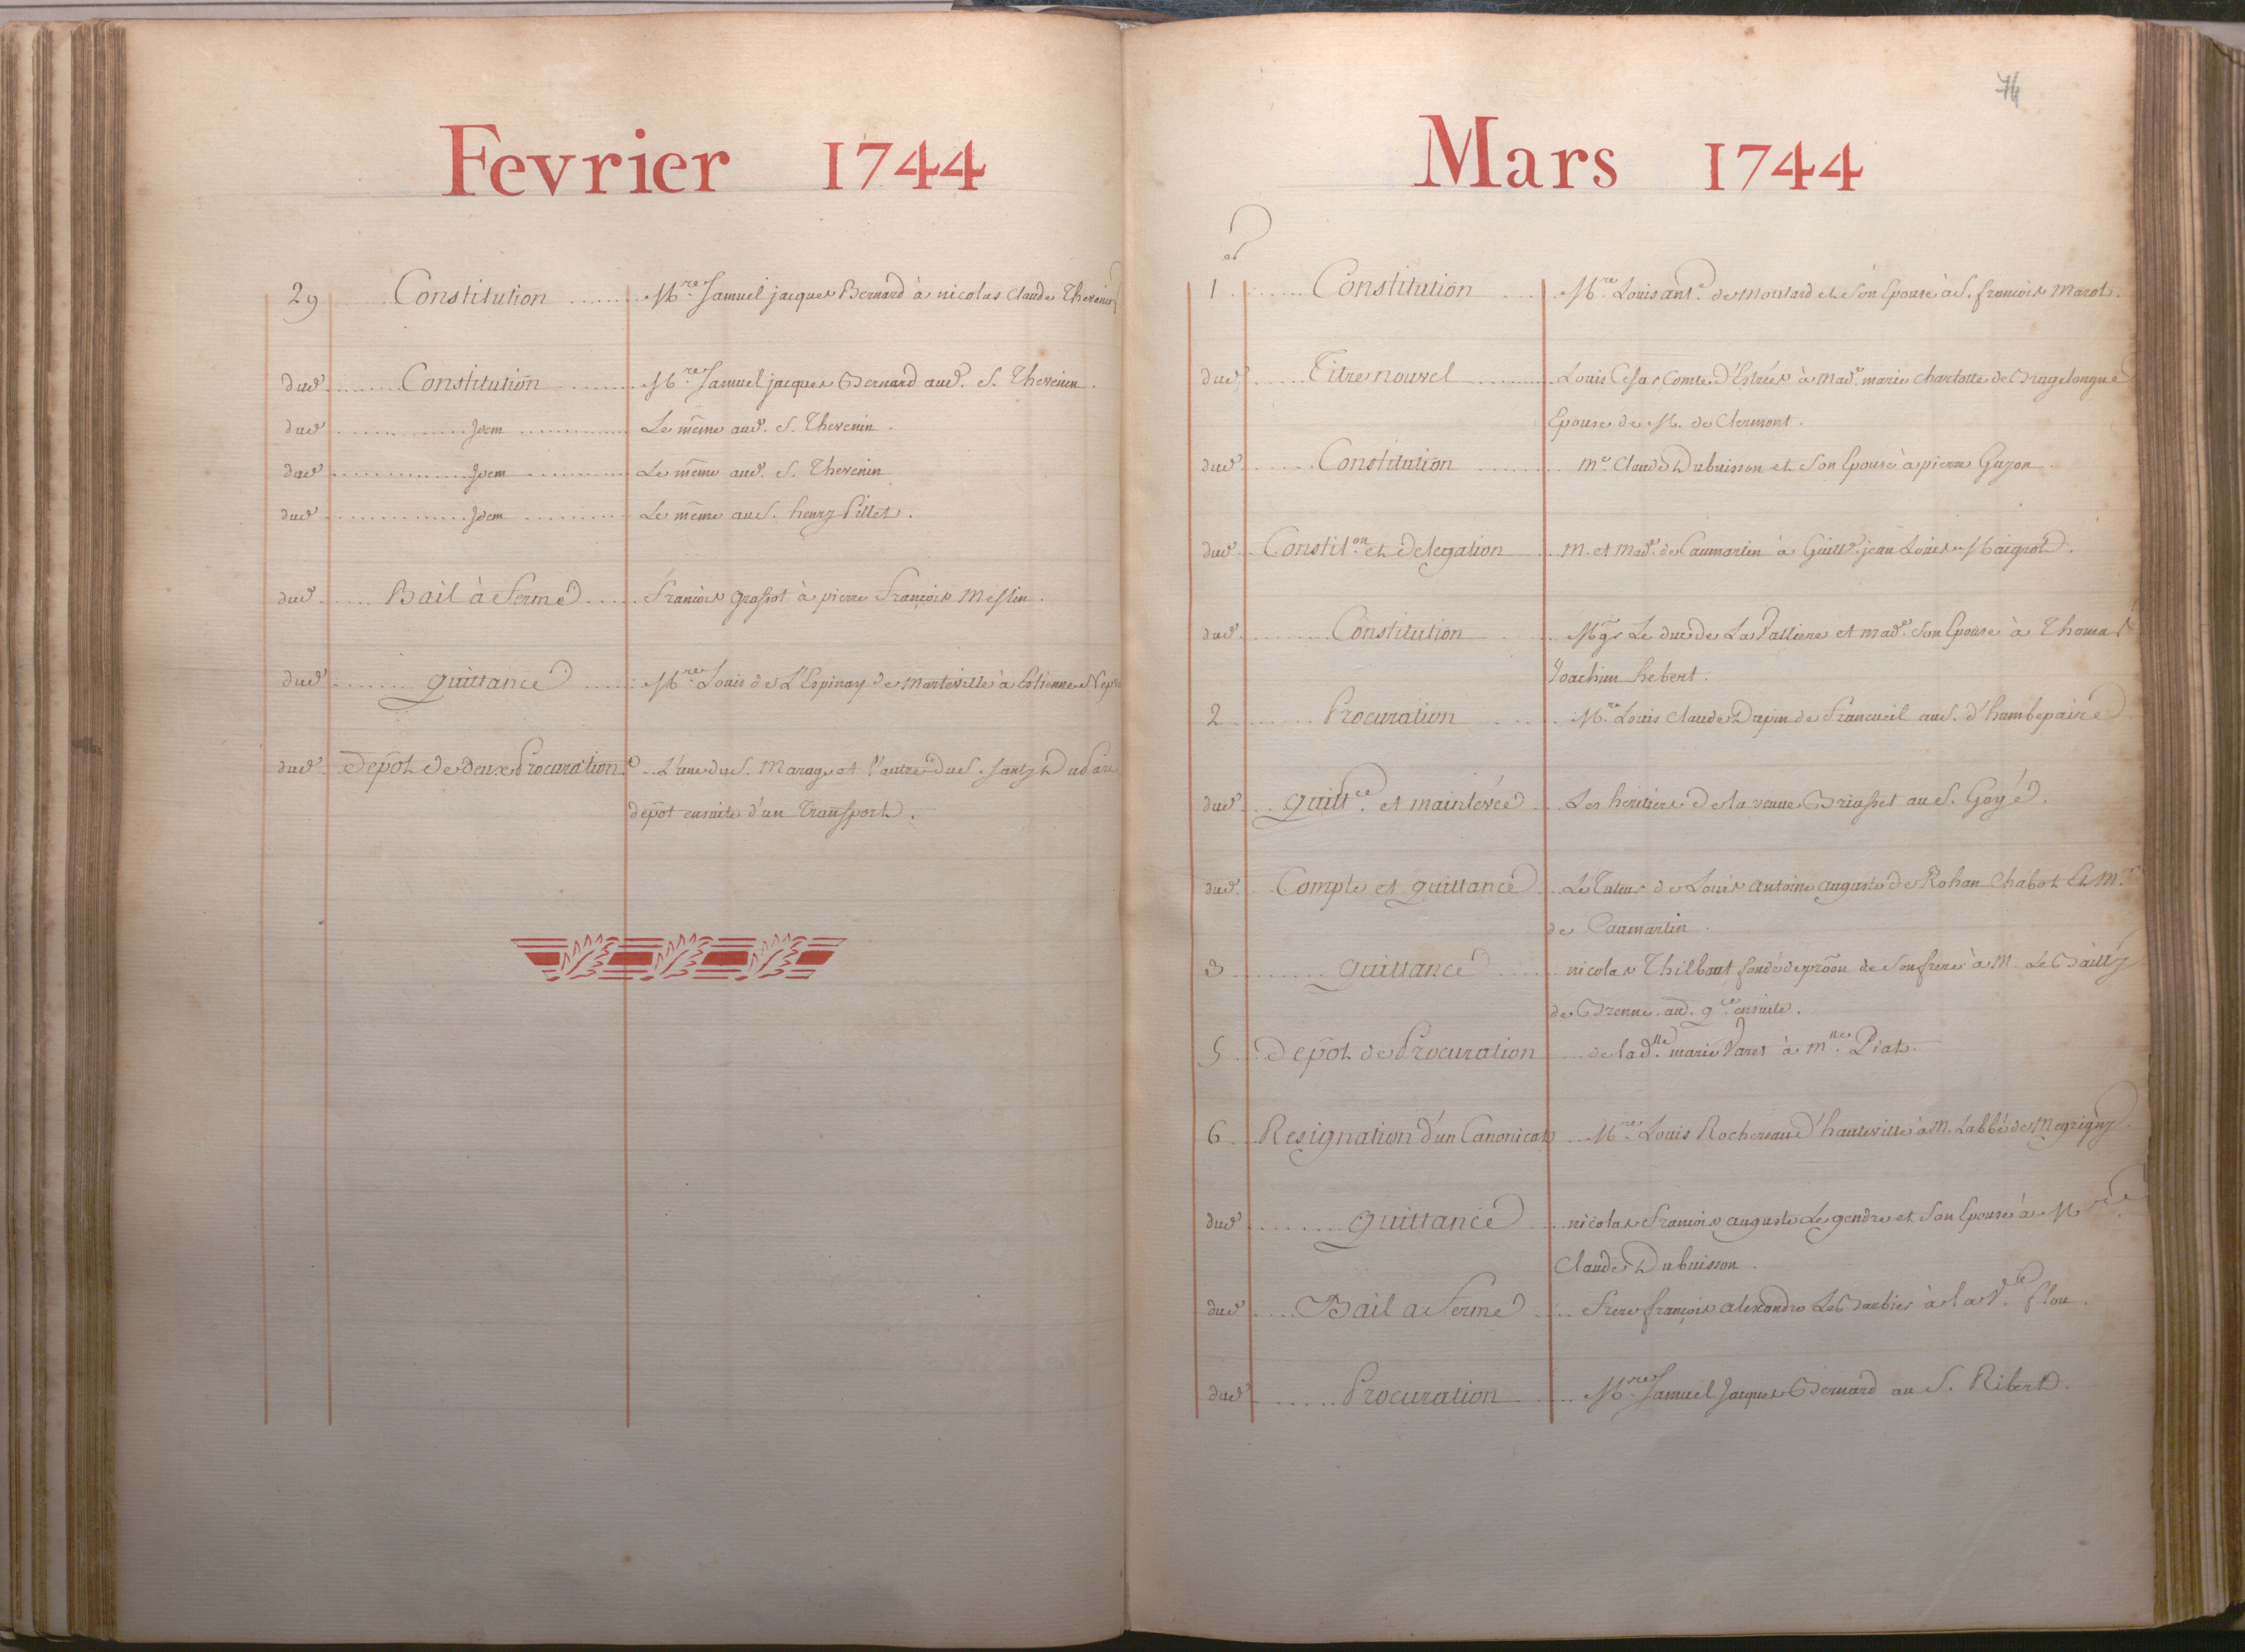 Fevrier 1744
29 Constitution M.re Samuel jacques Bernard à nicolas Claude Thevenin
dud. Constitution M.re Samuel jacques Bernard aud. S. Thevenin.
dud. Idem Le même aud. S. Thevenin.
dud. Idem Le même aud. S. Thevenin
dud. Idem Le même au S. henry Pillet.
dud. Bail à ferme François Grossot à pierre François Meslin.
dud. quittance M.re Louis de L'Espinay de Marteville à Estienne
dud. Depôt de deux Procuration.s L'une du S. Marage et l'autre du S.
depôt ensuite d'un transport.
74
Mars 1744
1.er Constitution M.re Louis ant.e de et Son Epouse à S. françois Marot.
dud. Titre nouvel Louis Cesar Comte d'Estrées à Mad.e marie Charlotte de Bragelongne
Epouse de M. de Clermont.
dud. Constitution M.e Claude Dubuisson et Son Epouse à pierre Guyon.
dud. Constit.on et Delegation M. et Mad.e de Caumartin à Guill.e jean Louis Maignol.
dud. Constitution Mgr Le duc de La Valliere et Mad.e Son Epouse à Thomas
Joachim hebert.
2 Procuration M.re Louis Claude Dupin de Francueil au S. d'humbepaire
dud. quitt.ce et mainlevée Les heritiers de la veuve Briasset au S. Goyé.
dud. Compte et quittance Le Tuteur de Louis Antoine Auguste de Rohan Chabot Et M.re
de Caumartin.
3 quittance nicolas Thilbaut fondé de prôon de Son frere à M. Le Bailly
de Brenne. aud. q.ce ensuite.
5 Depôt de Procuration de la d.lle marie Varet à M.lle Piat.
6 Resignation d'un Canonicat M.re Louis Rochereau d'hauteville à M. Labbé de Megrigny.
dud. quittance nicolas François auguste Legendre et Son Epouse à M.re
Claude Dubuisson.
dud. Bail a ferme Frere françois alexandre Le Barbier à la V.e Flou.
dud. Procuration M.re Samuel Jacques Bernard au S. Ribert.